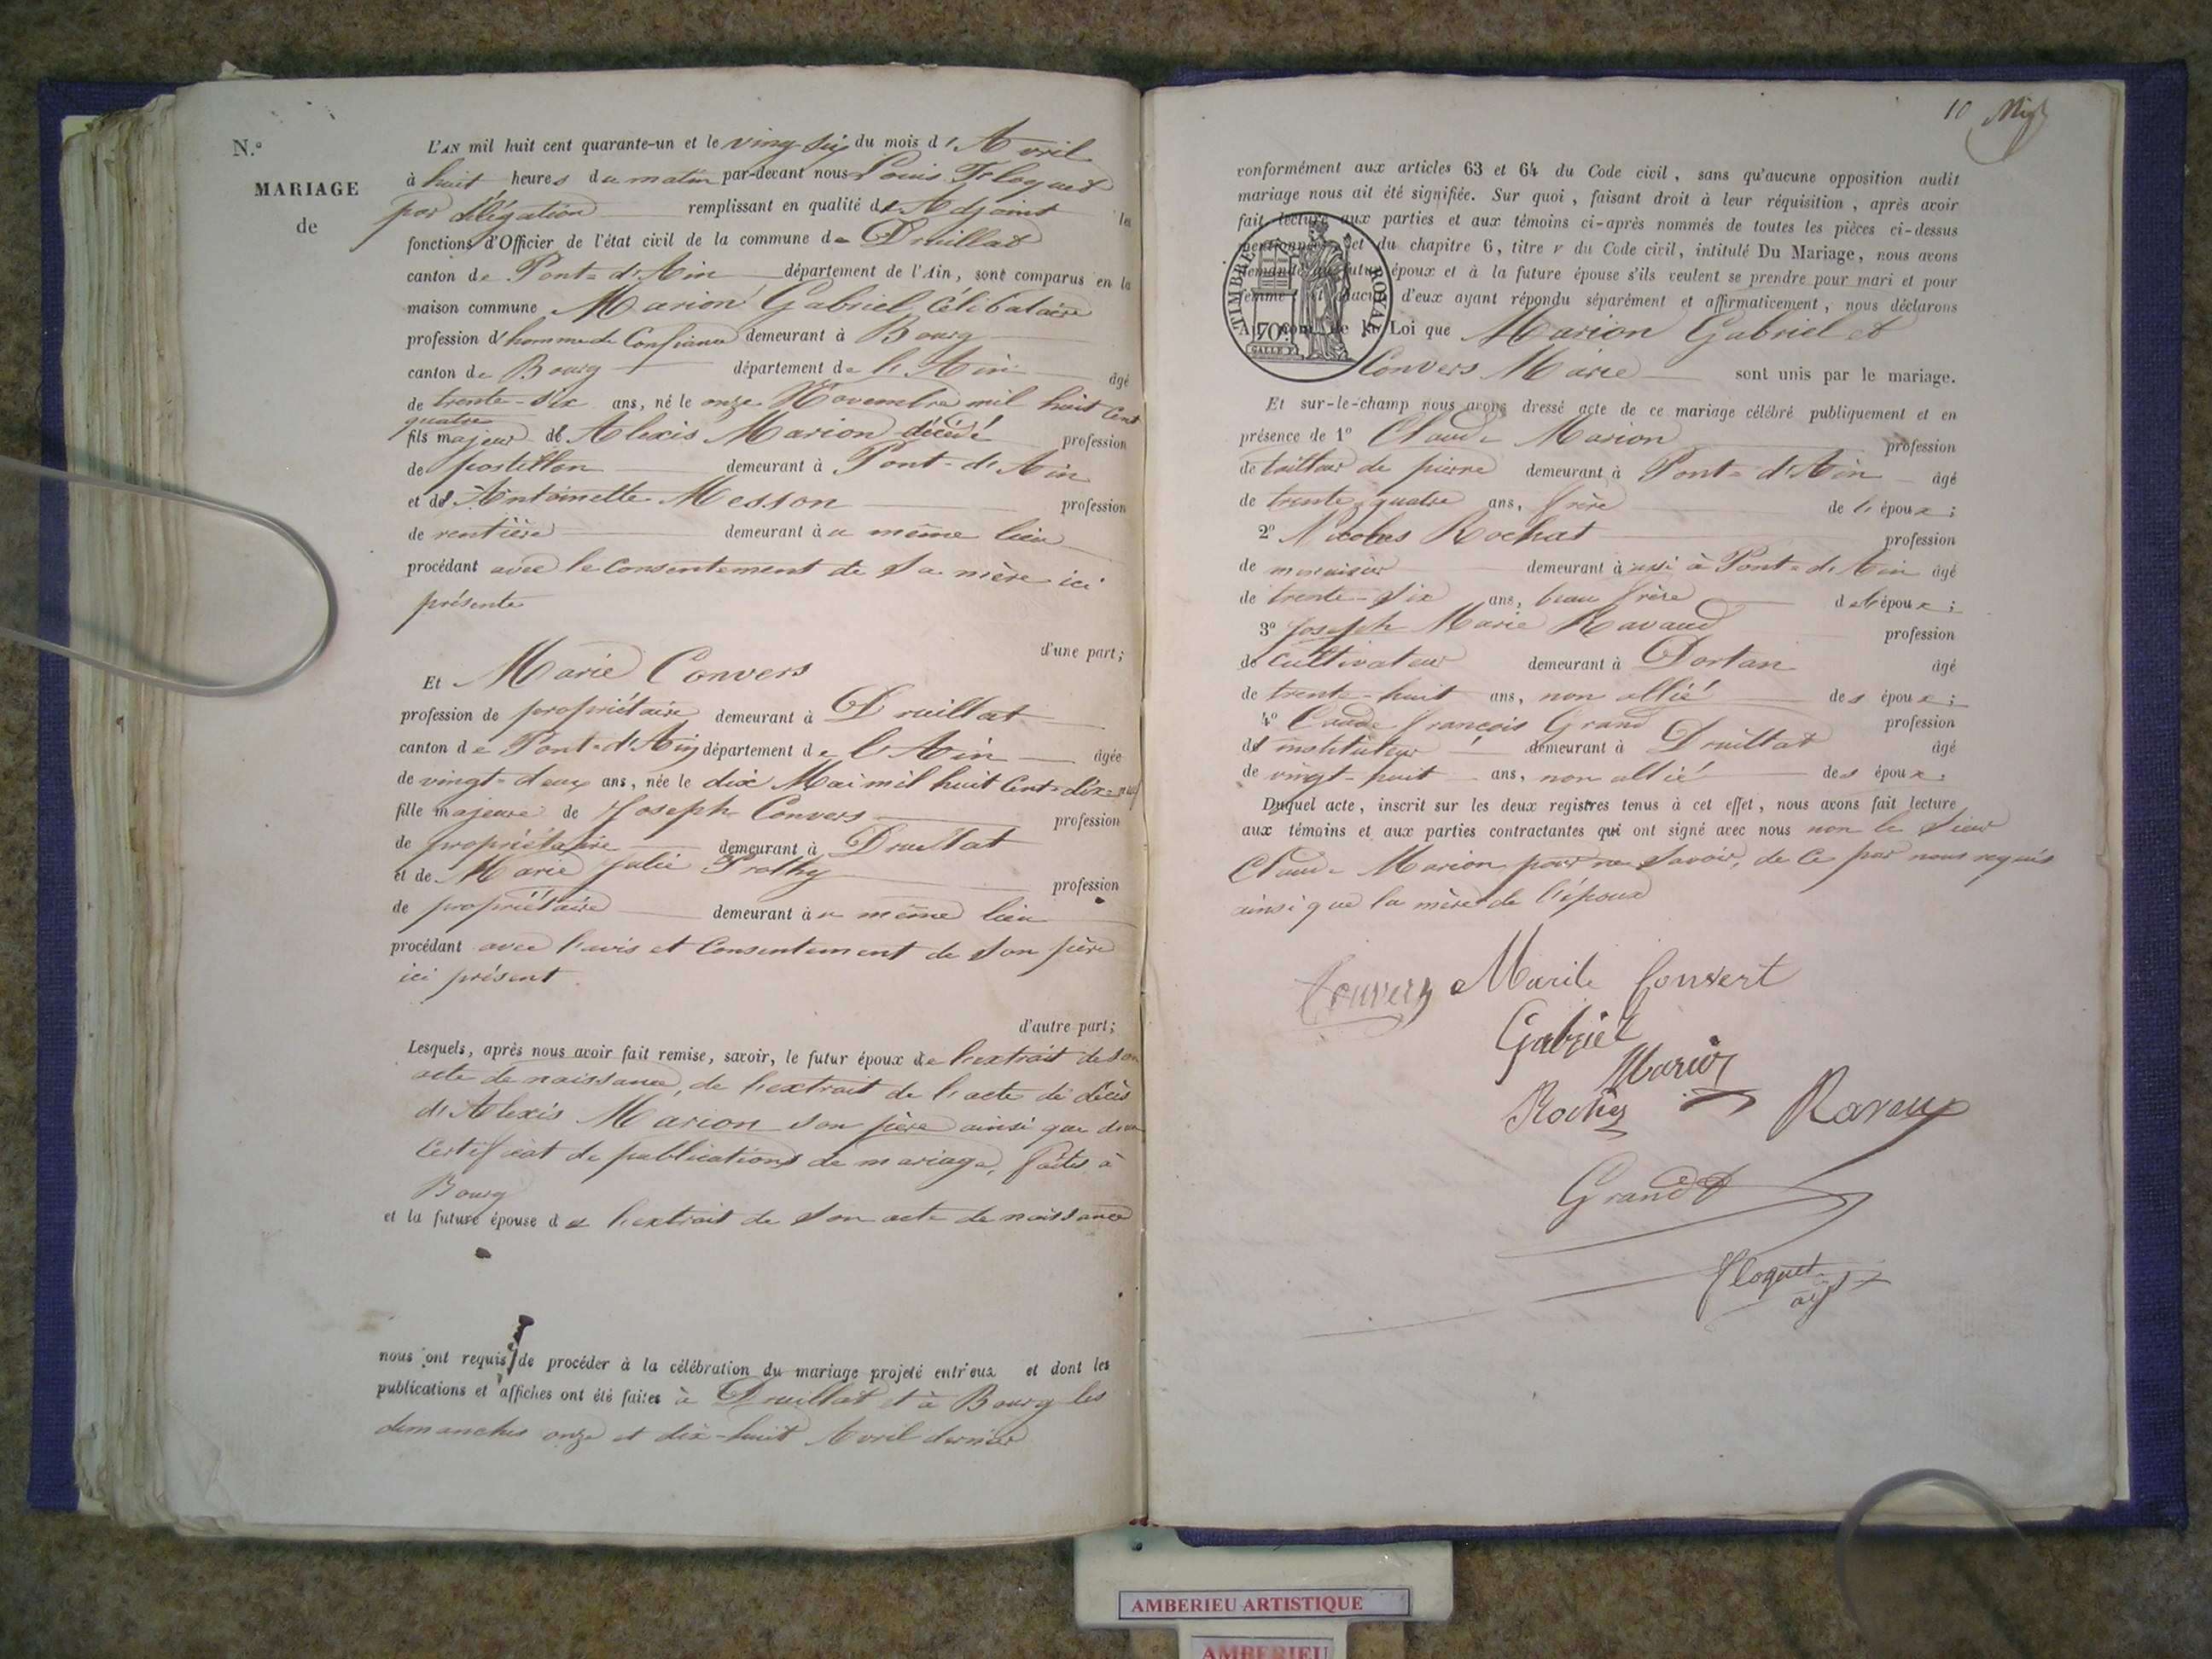 N.º
MARIAGE
de
L'AN mil huit cent quarante-un et le vingt-six du mois d'Avril
à huit heures du matin par-devant nous Louis Floquet
par délégation remplissant en qualité d'Adjoint les
fonctions d'Officier de l'état civil de la commune de Druillat
canton de Pont-d'Ain département de l'Ain, sont comparus en la
maison commune Marion Gabriel Célibataire
profession d'homme de Confiance demeurant à Bourg
canton de Bourg département de l'Ain âgé
de trente-six ans, né le onze Novembre mil huit Cent
quatre
fils majeur de Alexis Marion décédé profession
de postillon demeurant à Pont-d'Ain
et de Antoinette Messon profession
de rentière demeurant au même lieu
procédant avec le Consentement de Sa mère ici
présente
d'une part;
Et Marie Convers
profession de propriétaire demeurant à Druillat
canton de Pont-d'Ain département de l'Ain âgée
de vingt-deux ans, née le dix Mai mil huit Cent-dix-neuf
fille majeure de Joseph Convers profession
de propriétaire demeurant à Druillat
et de Marie Julie Prothy profession
de propriétaire demeurant au même lieu
procédant avec l'avis et Consentement de Son père
ici présent
d'autre part;
Lesquels, après nous avoir fait remise, savoir, le futur époux de l'extrait de son
acte de naissance, de l'extrait de l'acte de décès
d'Alexis Marion son père ainsi que d'un
Certificat de publications de mariage, faites à
Bourg
et la future épouse de l'extrait de Son acte de naissance
nous ont requis de procéder à la célébration du mariage projeté entr'eux et dont les
publications et affiches ont été faites à Druillat et à Bourg les
dimanches onze et dix-huit Avril dernier
10
conformément aux articles 63 et 64 du Code civil, sans qu'aucune opposition audit
mariage nous ait été signifiée. Sur quoi, faisant droit à leur réquisition, après avoir
fait lecture aux parties et aux témoins ci-après nommés de toutes les pièces ci-dessus
mentionnées et du chapitre 6, titre v du Code civil, intitulé Du Mariage, nous avons
demandé au futur époux et à la future épouse s'ils veulent se prendre pour mari et pour
femme; et chacun d'eux ayant répondu séparément et affirmativement, nous déclarons
Au nom de la Loi que Marion Gabriel et
Convers Marie sont unis par le mariage.
TIMBRE ROYAL
70c
GALLE F.
Et sur-le-champ nous avons dressé acte de ce mariage célébré publiquement et en
présence de 1º Claude Marion profession
de tailleur de pierre demeurant à Pont-d'Ain âgé
de trente-quatre ans, frère de l'époux;
2º Nicolas Rochat profession
de menuisier demeurant aussi à Pont-d'Ain âgé
de trente-six ans, beau frère de l'époux;
3º Joseph Marie Ravaud profession
de cultivateur demeurant à Dortan âgé
de trente-huit ans, non allié des époux;
4º Claude françois Grand profession
d'instituteur demeurant à Druillat âgé
de vingt-huit ans, non allié des époux.
Duquel acte, inscrit sur les deux registres tenus à cet effet, nous avons fait lecture
aux témoins et aux parties contractantes qui ont signé avec nous non le Sieur
Claude Marion pour ne Savoir, de Ce par nous requis
ainsi que la mère de l'époux
Convers Marie Convert
Gabriel
Marion
Grand
floquet
adjt
AMBERIEU ARTISTIQUE
AMBERIEU